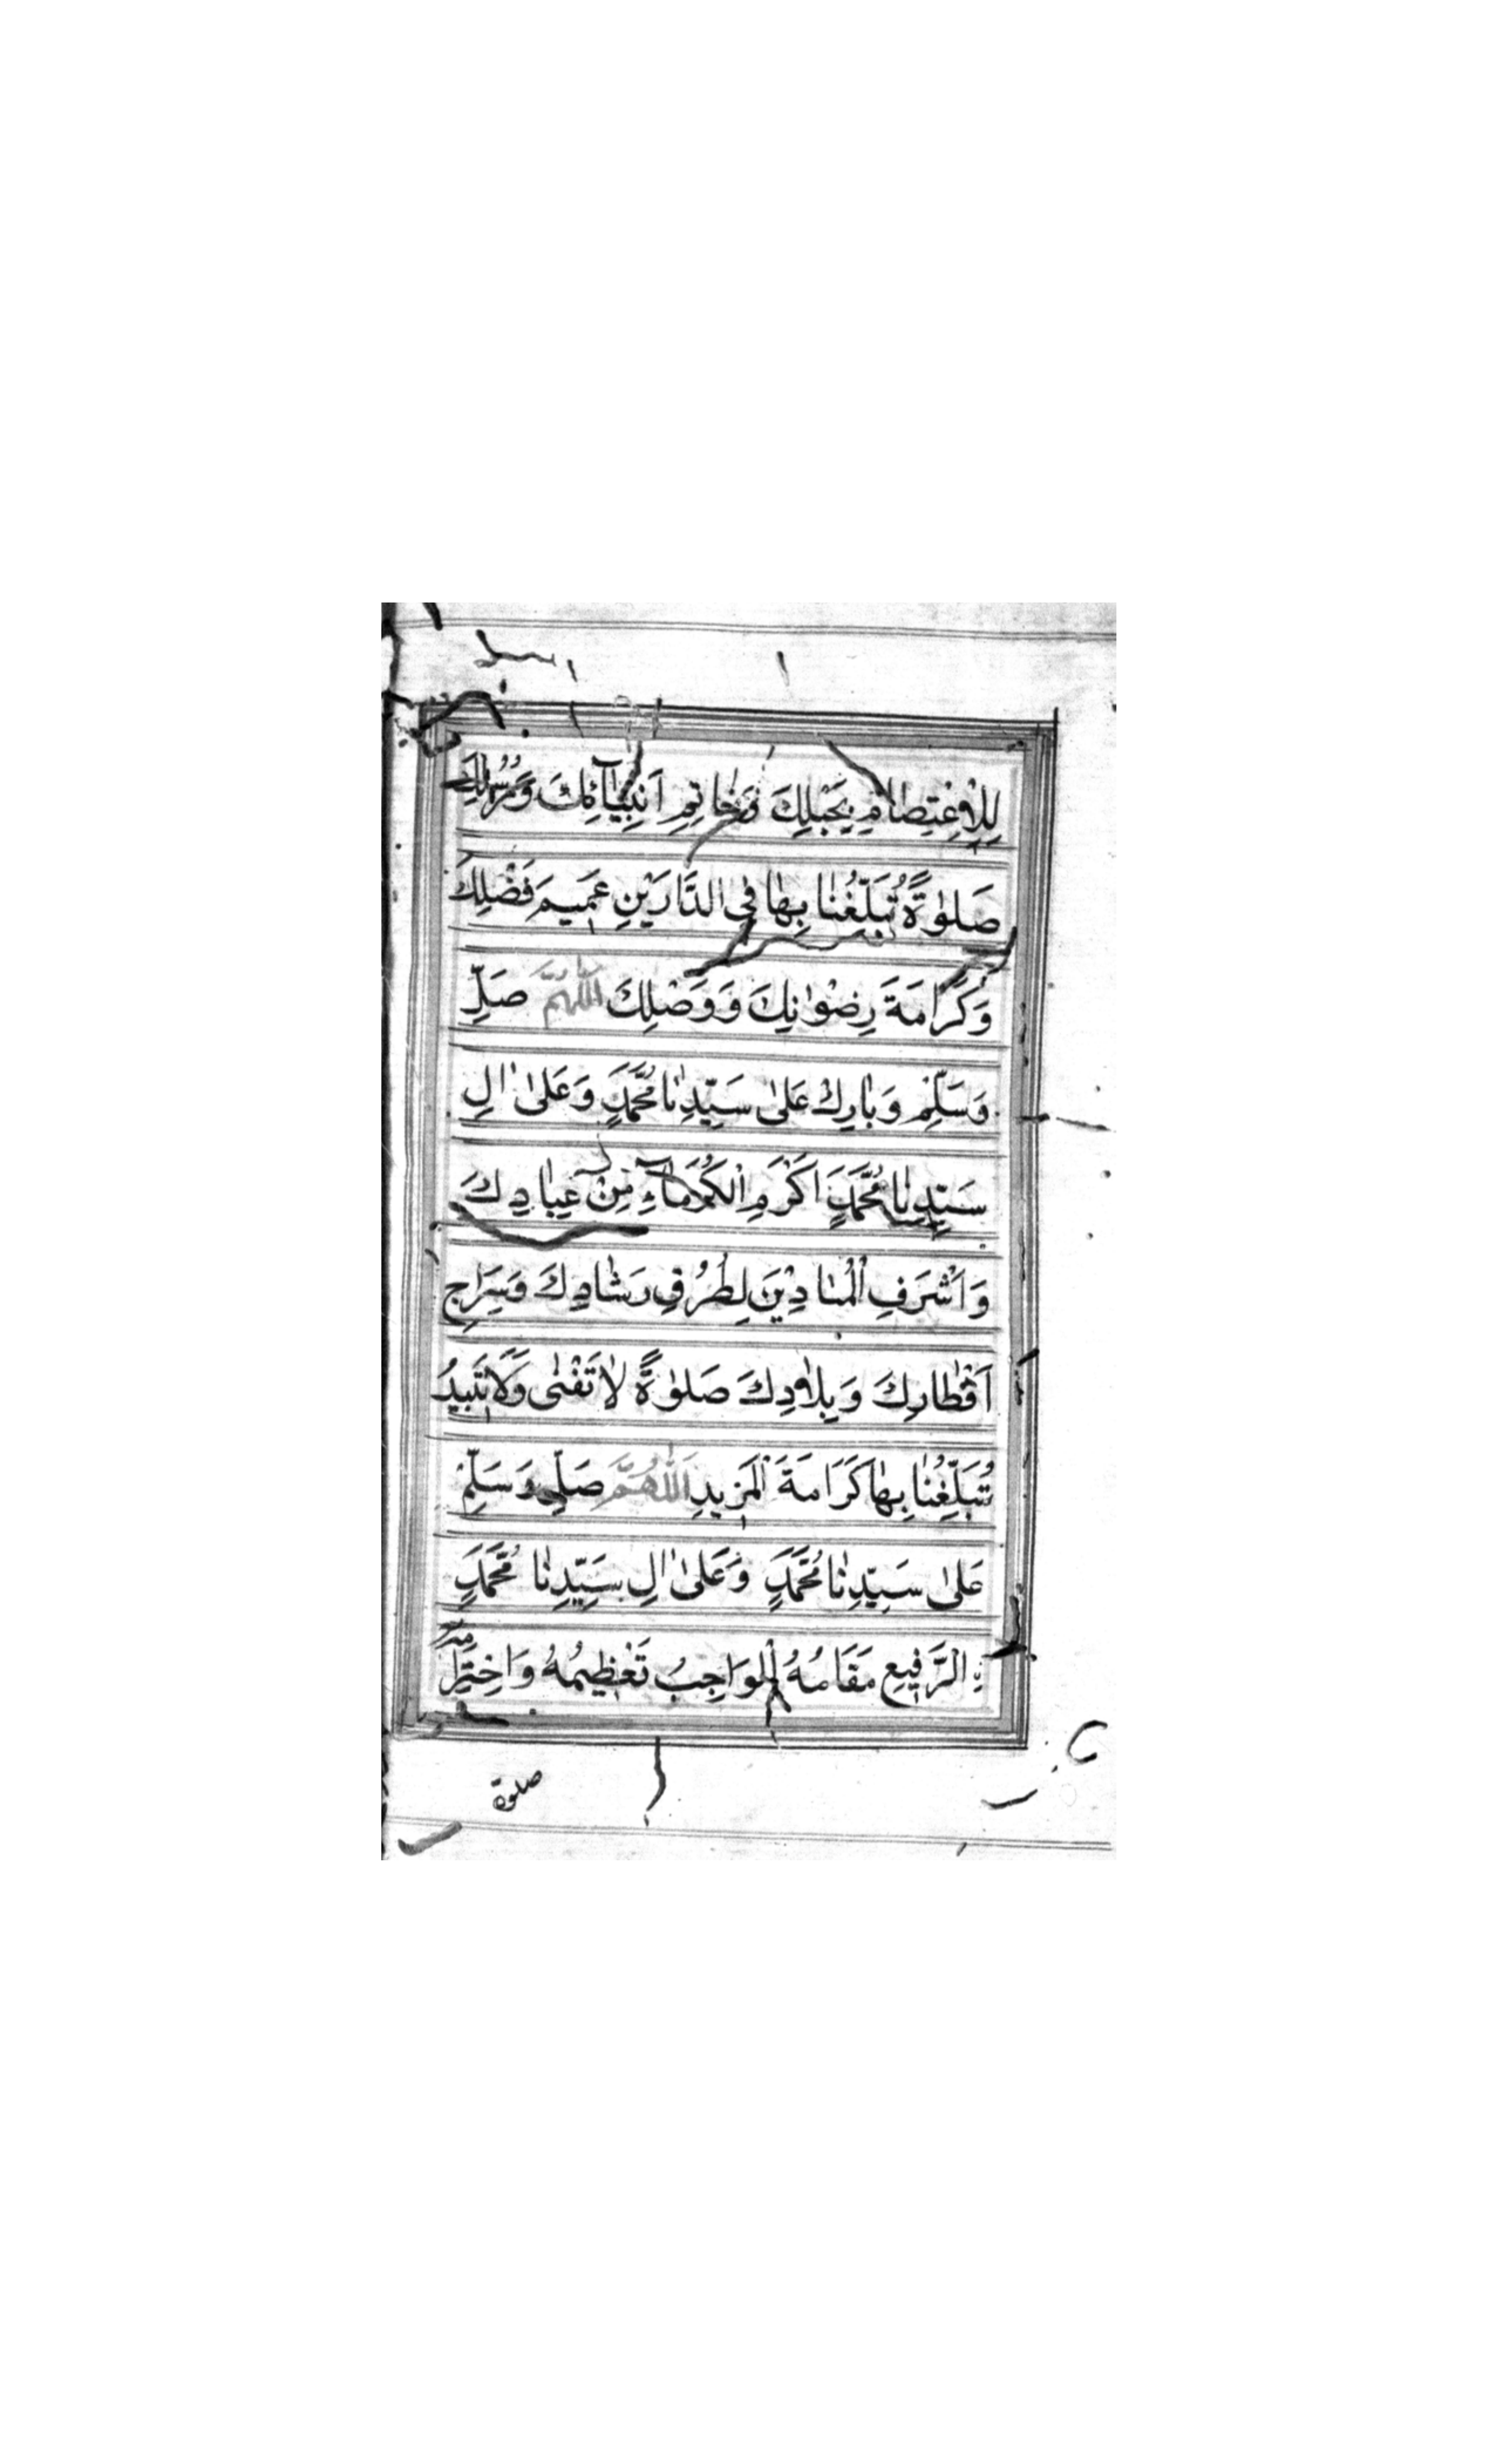 لِلْاِعْتِصَامِ بِحَبْلِكَ وَخَاتِمِ اَنْبِيَآئِكَ وَرُسُلِكَ
صَلٰوةً تُبَلِّغُنَا بِهَا فِي الدَّارَيْنِ عَمِيمَ فَضْلِكَ
وَكَرَامَةَ رِضْوَانِكَ وَوَصْلِكَ اَللّٰهُمَّ صَلِّ
وَسَلِّمْ وَبَارِكْ عَلٰى سَيِّدِنَا مُحَمَّدٍ وَعَلٰى اٰلِ
سَيِّدِنَا مُحَمَّدٍ اَكْرَمِ الْكُرَمَآءِ مِنْ عِبَادِكَ
وَاَشْرَفِ الْمُنَادِيْنَ لِطُرُقِ رَشَادِكَ وَسِرَاجِ
اَقْطَارِكَ وَبِلَادِكَ صَلٰوةً لَا تَفْنٰى وَلَا تَبِيدُ
تُبَلِّغُنَا بِهَا كَرَامَةَ الْمَزِيدِ اَللّٰهُمَّ صَلِّ وَسَلِّمْ
عَلٰى سَيِّدِنَا مُحَمَّدٍ وَعَلٰى اٰلِ سَيِّدِنَا مُحَمَّدٍ
الرَّفِيعِ مَقَامُهُ الْوَاجِبُ تَعْظِيمُهُ وَاحْتِرَامُهُ
صلوة